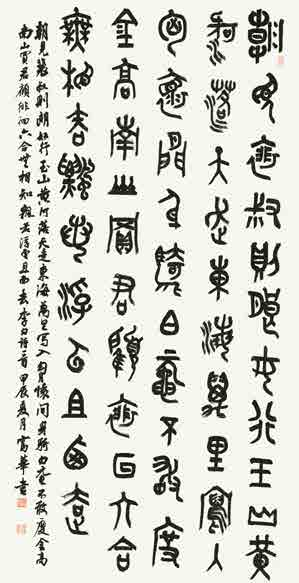 朝見裴叔則朗如行玉山黃
河落天走東海萬里寫入
胸懷間身騎白黿不敢度
金高南山買君顧裴回六合
無相知飄若浮雲且西去
朝見裴叔則朗如行玉山黃河落天走東海萬里寫入胸懷間身騎白黿不敢度金高
南山買君顧俳回六合無相知飄若浮雲且西去李白詩一首甲辰夏月富華書